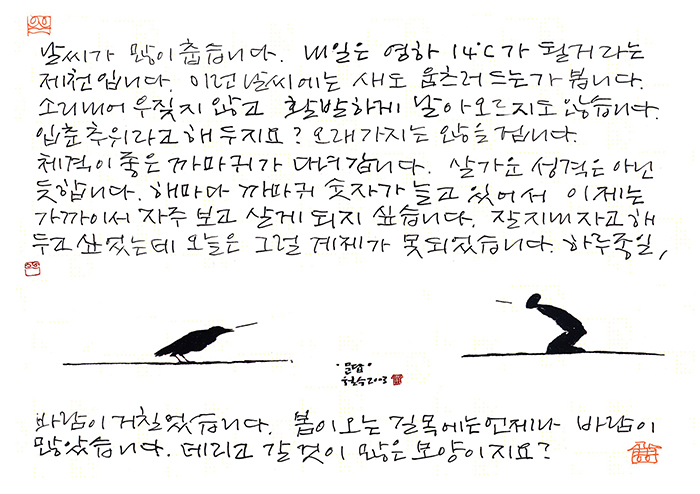 날씨가 많이 춥습니다. 내일은 영하 14℃가 될거라는
제천입니다. 이런 날씨에는 새도 움츠러드는가 봅니다.
소리내어 우짖지 않고 활발하게 날아오르지도 않습니다.
입춘추위라고 해 두지요? 오래가지는 않을겁니다.
체격이 좋은 까마귀가 다녀갑니다. 살가운 성격은 아닌
듯합니다. 해마다 까마귀 숫자가 늘고 있어서 이제는
가까이서 자주 보고 살게 되지 싶습니다. 잘지내자고 해
두고 싶었는데 오늘은 그럴 계제가 못되었습니다. 하루종일,
"문답"
철수 2003
바람이 거칠었습니다. 봄이 오는 길목에는 언제나 바람이
많았습니다. 데리고 갈 것이 많은 모양이지요?